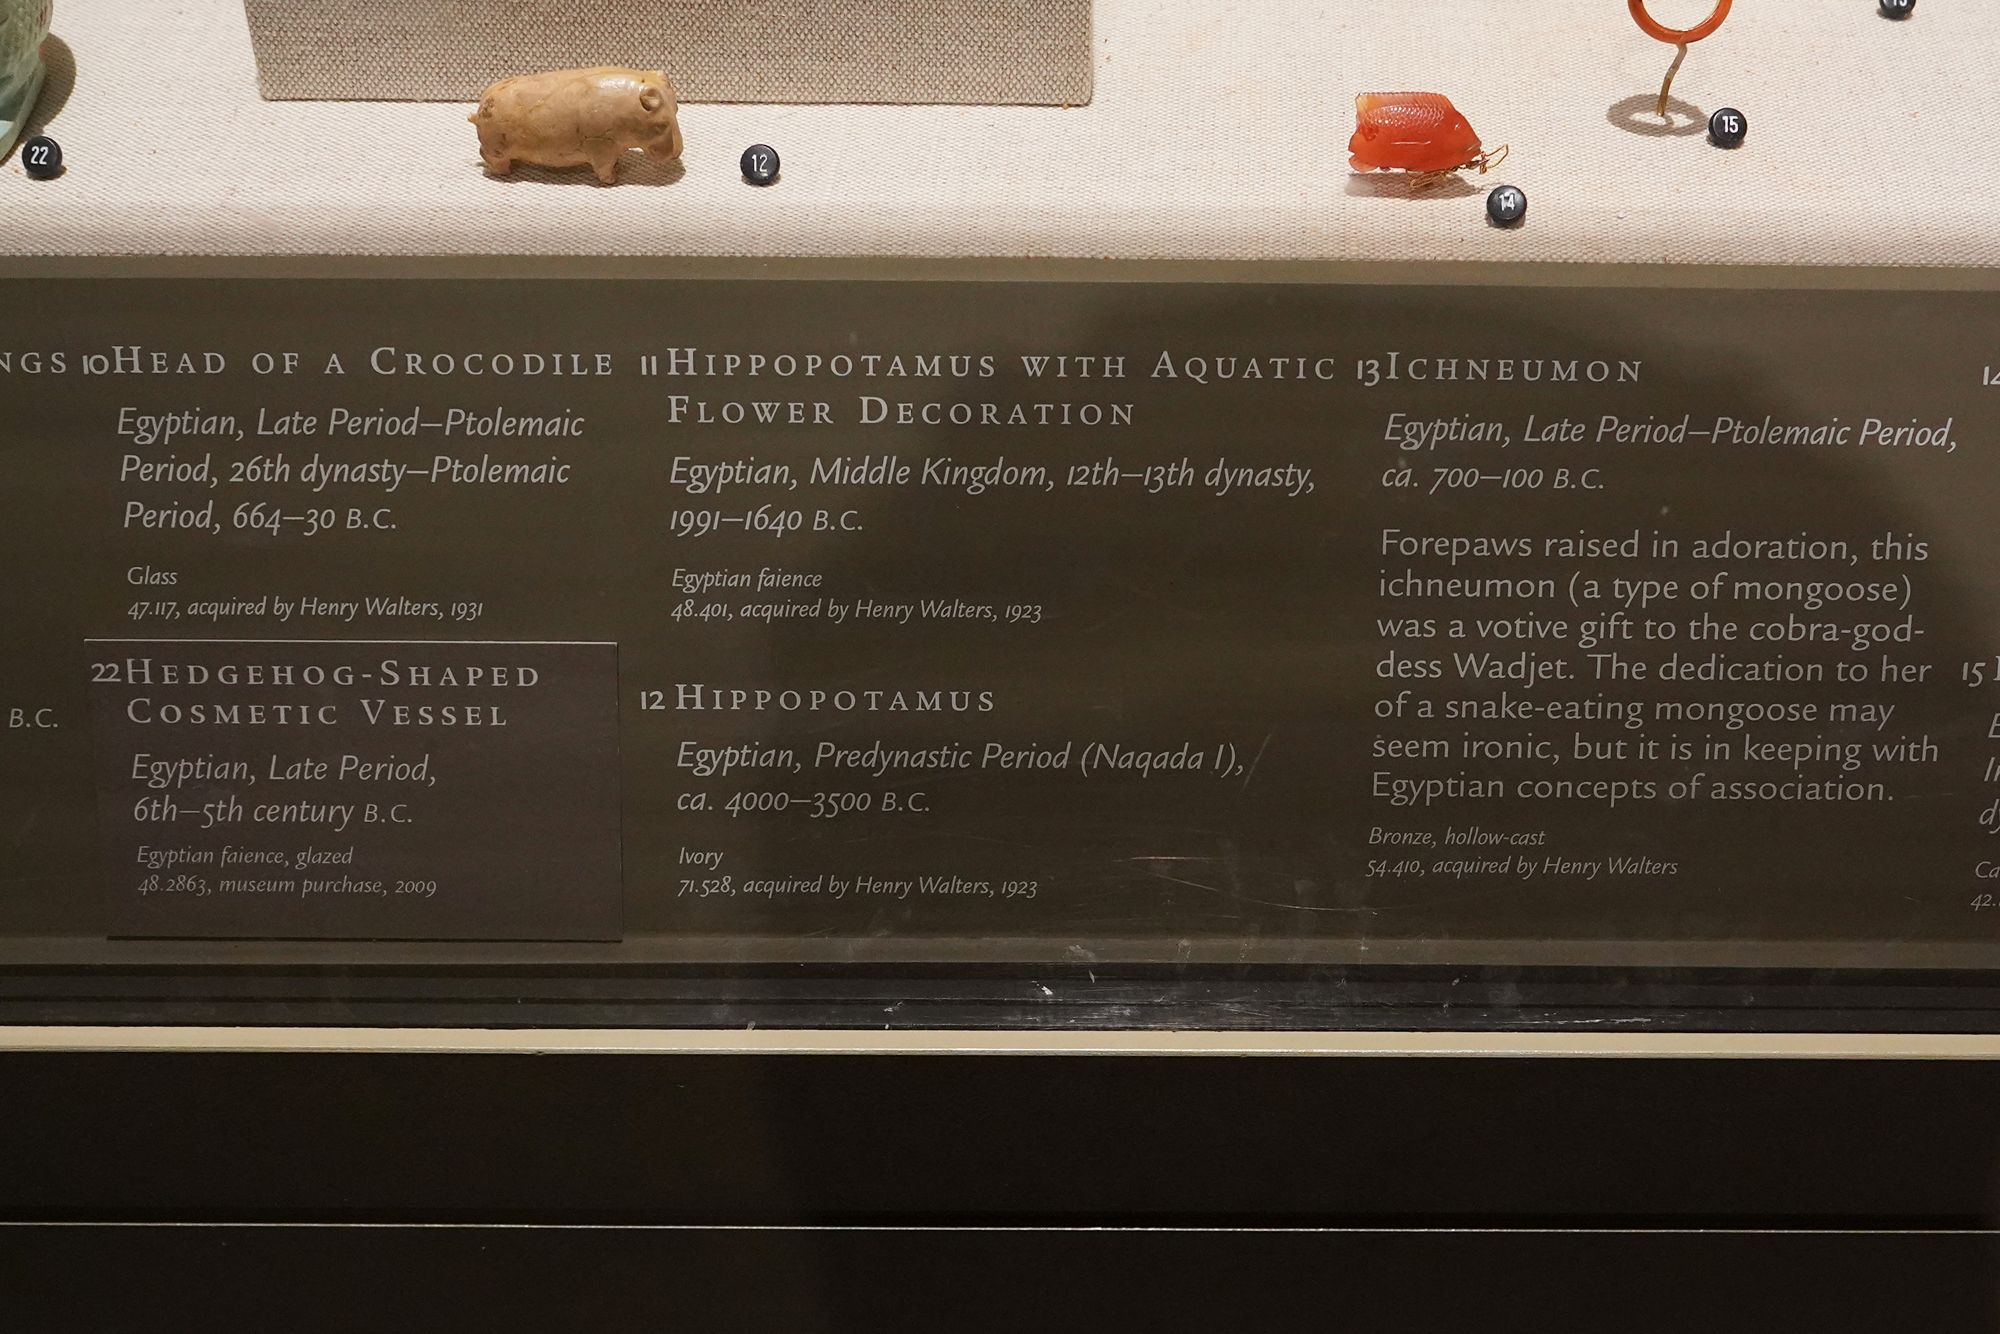 22
12
14
15
NGS
B.C.
10 HEAD OF A CROCODILE
Egyptian, Late Period—Ptolemaic
Period, 26th dynasty—Ptolemaic
Period, 664—30 B.C.
Glass
47.117, acquired by Henry Walters, 1931
22 HEDGEHOG-SHAPED
COSMETIC VESSEL
Egyptian, Late Period,
6th—5th century B.C.
Egyptian faience, glazed
48.2863, museum purchase, 2009
11 HIPPOPOTAMUS WITH AQUATIC
FLOWER DECORATION
Egyptian, Middle Kingdom, 12th—13th dynasty,
1991—1640 B.C.
Egyptian faience
48.401, acquired by Henry Walters, 1923
12 HIPPOPOTAMUS
Egyptian, Predynastic Period (Naqada I),
ca. 4000—3500 B.C.
Ivory
71.528, acquired by Henry Walters, 1923
13 ICHNEUMON
Egyptian, Late Period—Ptolemaic Period,
ca. 700—100 B.C.
Forepaws raised in adoration, this
ichneumon (a type of mongoose)
was a votive gift to the cobra-god-
dess Wadjet. The dedication to her
of a snake-eating mongoose may
seem ironic, but it is in keeping with
Egyptian concepts of association.
Bronze, hollow-cast
54.410, acquired by Henry Walters
14
15
Ca
42.